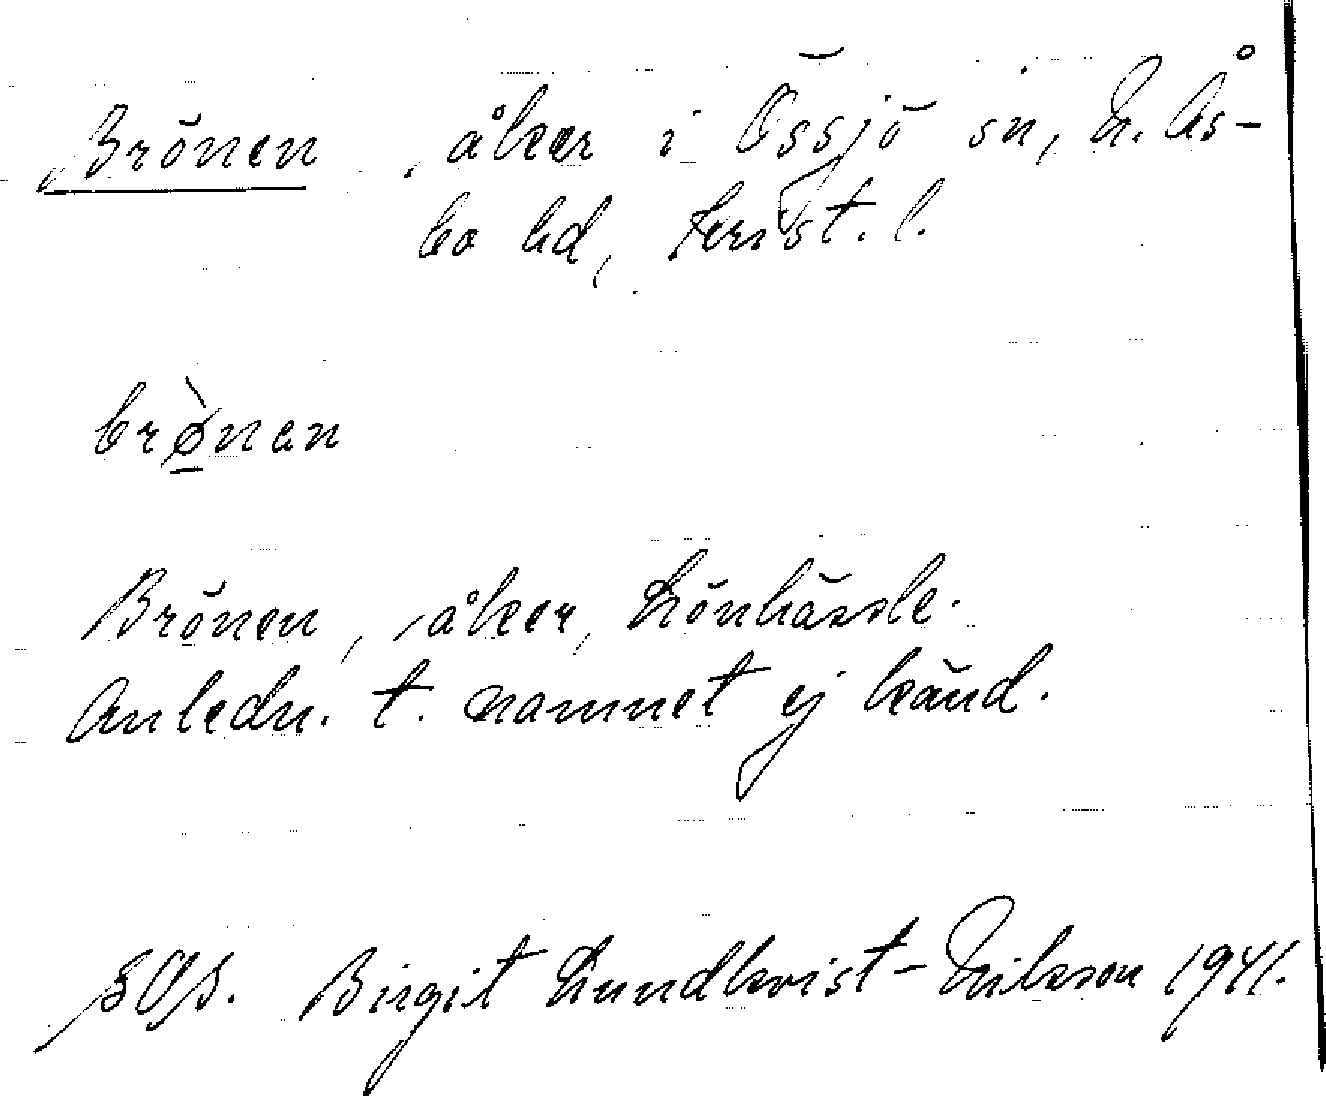 Brönen, åker i Össjö sn, N. Ås-
bo hd, Krist. l.
brø̲̀nan
Brönen, åker, Lönhässle.
Anledn. t. namnet ej känd.
Birgit Lundkvist-Nilsson 1941.